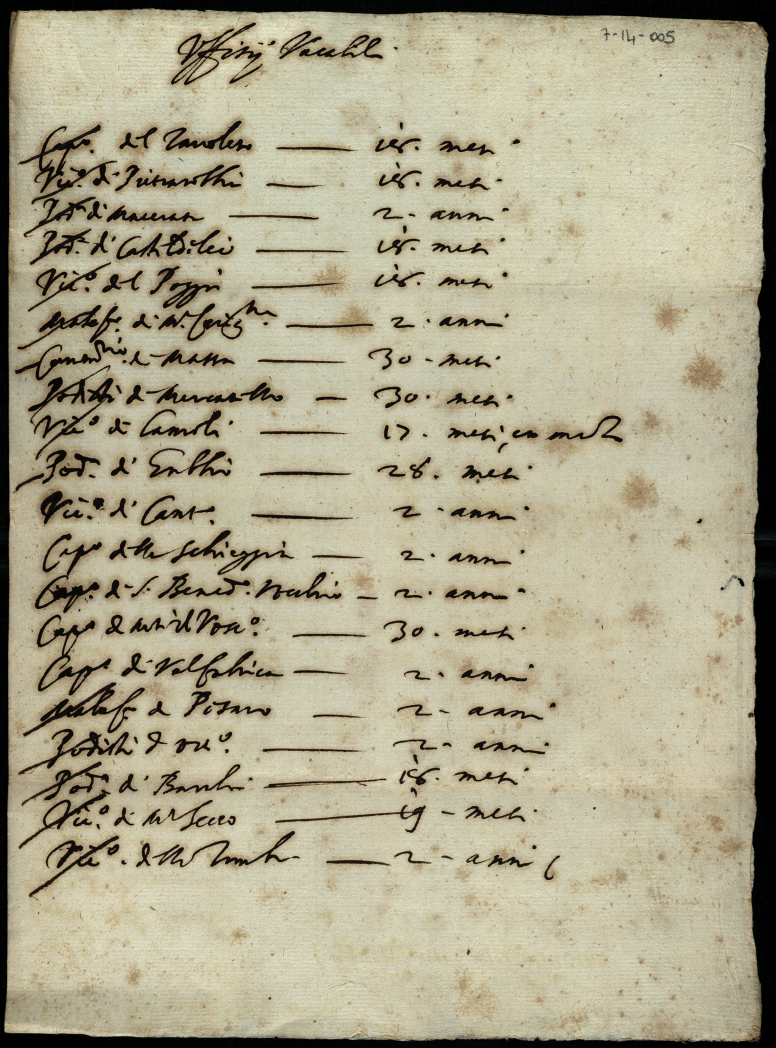 7-14-005
Uffitij Vacabili
Cap.º del Tavoleto — 18. mesi
Vic.º di Pietrarubbia — 18. mesi
Pod.à di Macerata — 2 - anni
Pod.à di Casteldelci — 18. mesi
Vic.º del Poggio — 18. mesi
di M. — 2 - anni
di Massa — 30 - mesi
Podestà di Mercatello — 30 - mesi
Vic.º di — 17. mesi, en
Pod.à di Gubbio — 28. mesi
Vic.º di Cant.º — 2 - anni
Cap.º della Scheggia — 2 - anni
Cap.º di S. Bened.º Vecchio — 2 - anni
Cap.º di — 30. mesi
Cap.º di Valfabrica — 2 - anni
di Pesaro — 2 - anni
Podestà d — 2 - anni
Pod.à di Barchi — 18. mesi
Vic.º di M. Secco — 19 - mesi
Vic.º della Tomba — 2 - anni